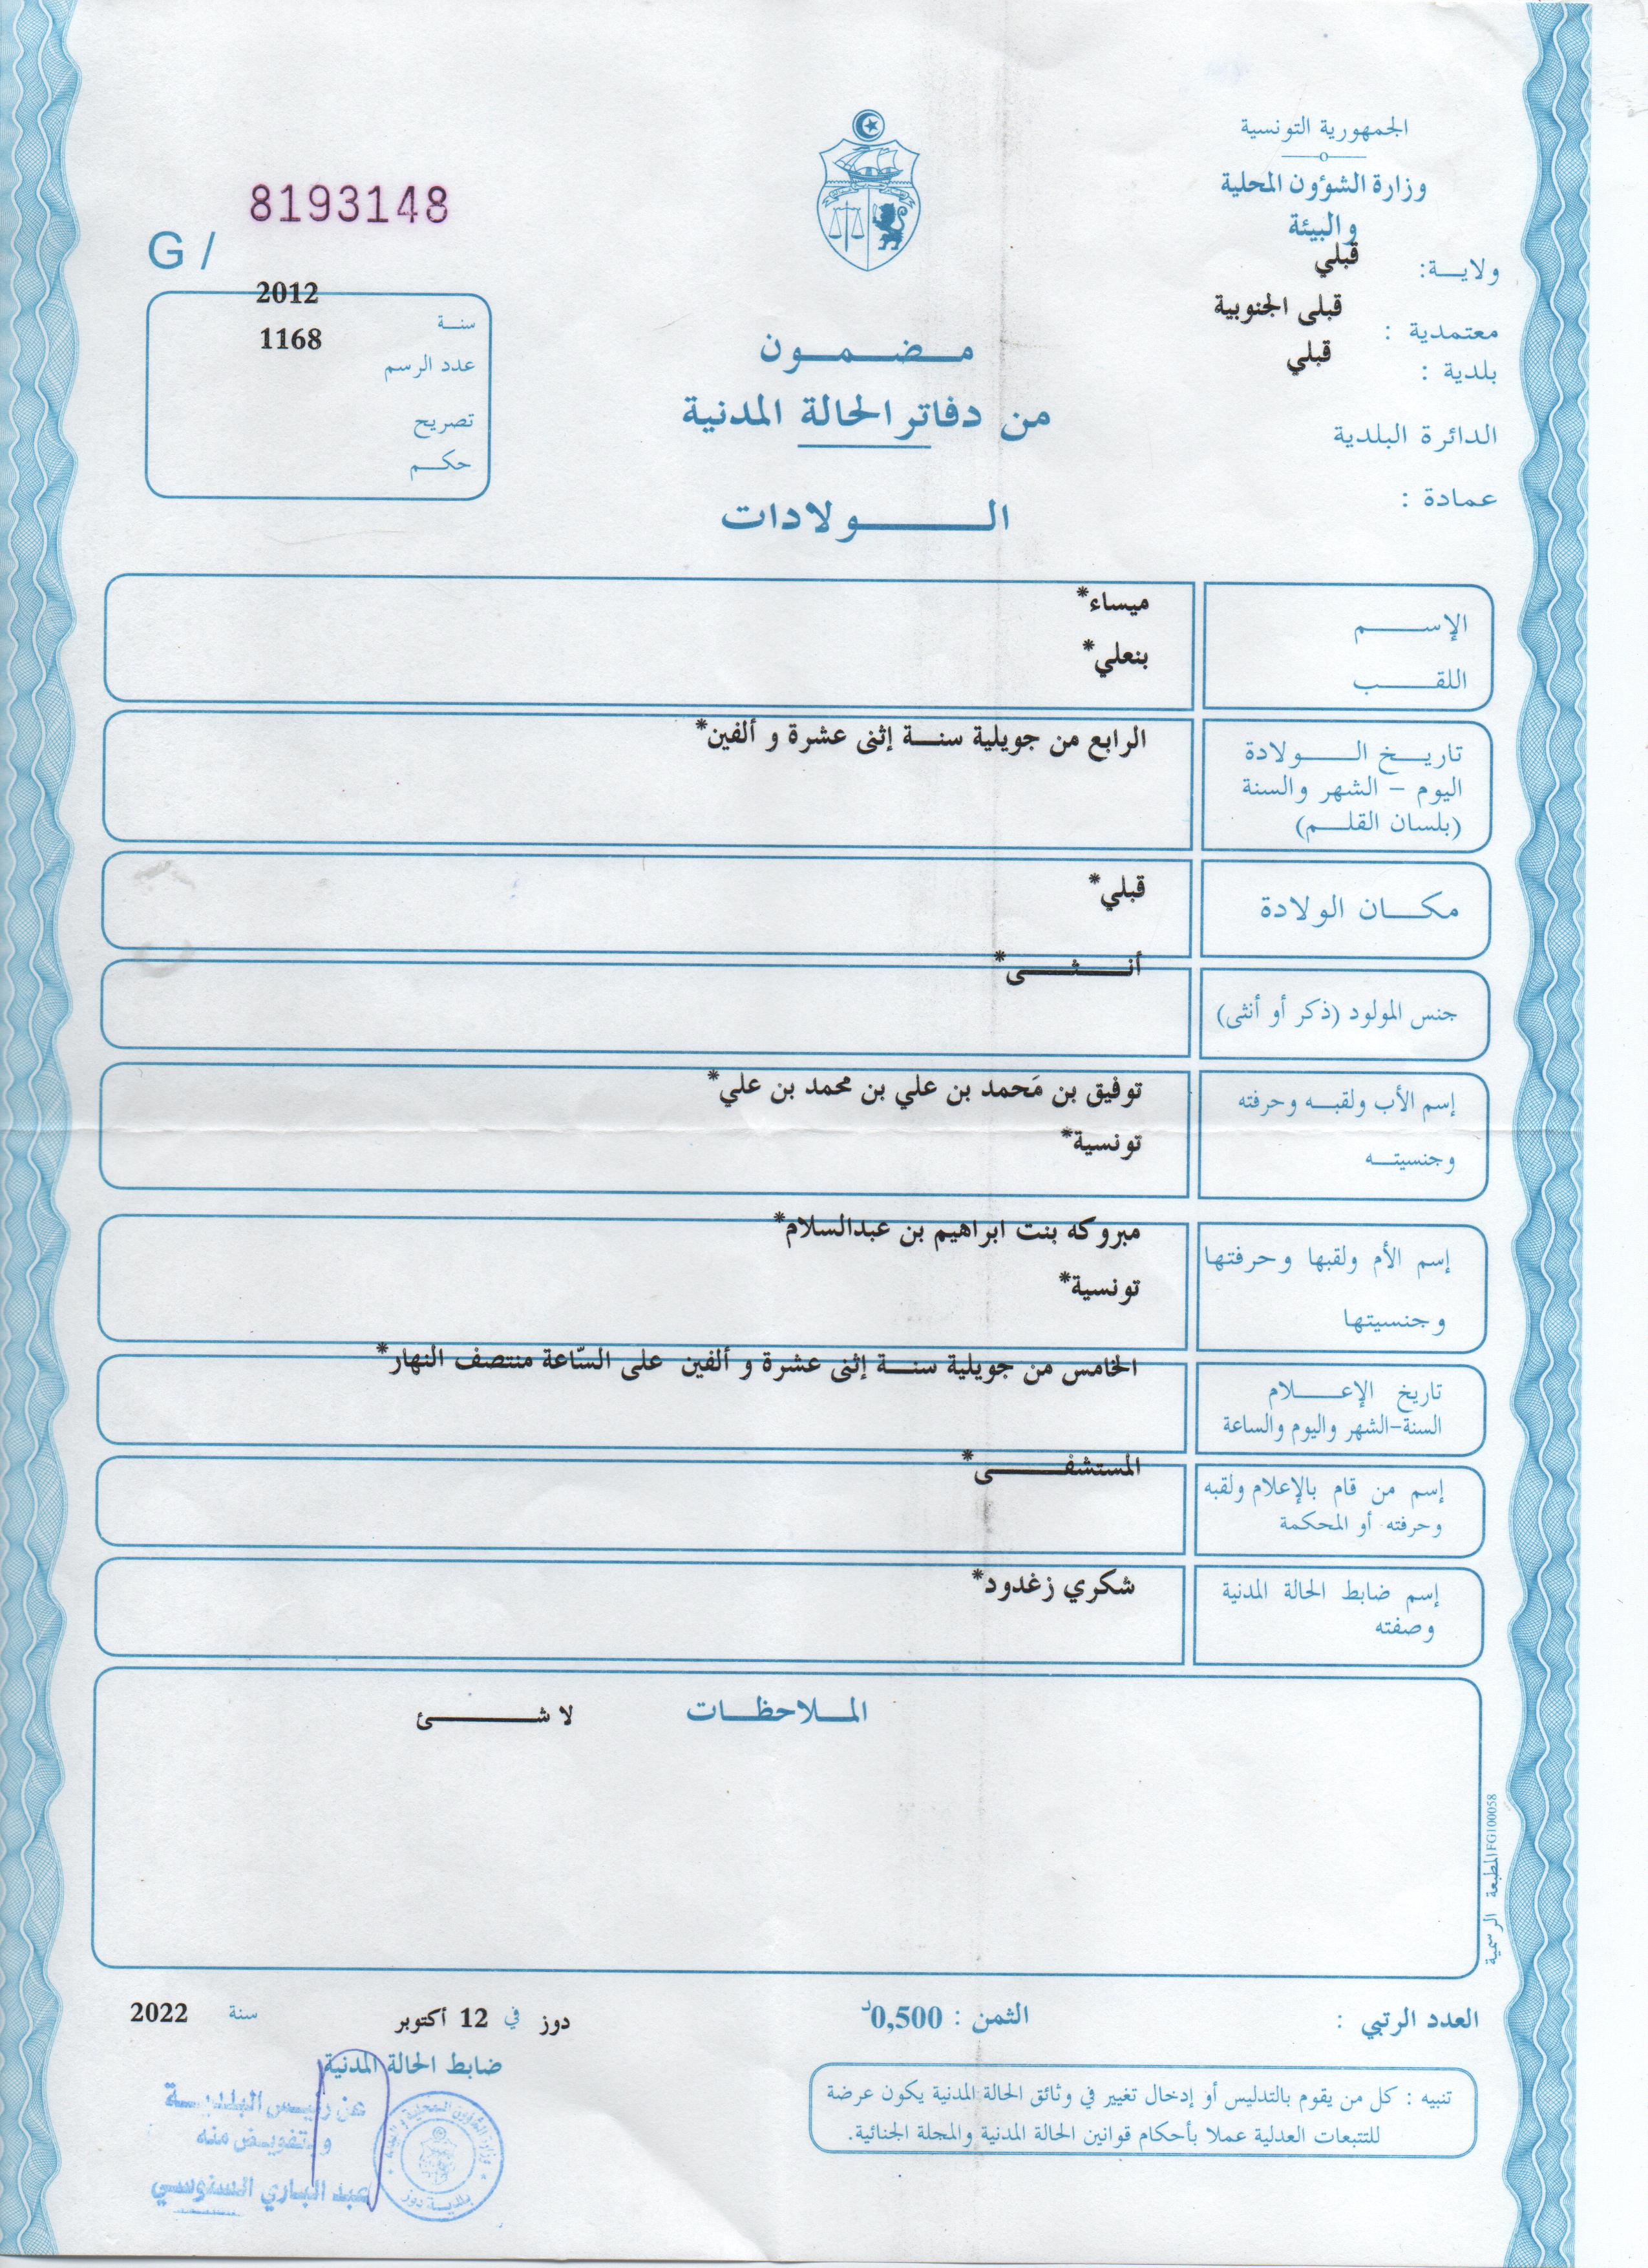 الجمهورية التونسية
وزارة الشؤون المحلية
والبيئة
ولايــة: قبلي
معتمدية : قبلى الجنوبية
بلدية : قبلي
الدائرة البلدية
عمادة :
8193148
G /
سنـة 2012
عدد الرسم 1168
تصريح
حكــم
مــضــمــون
من دفاتر الحالة المدنية
الــــولادات
الإســـــم ميساء*
اللقـــــب بنعلي*
تاريــخ الـــولادة
اليوم – الشهر والسنة
(بلسان القلــم)
الرابع من جويلية سنــة إثنى عشرة و ألفين*
مكــان الولادة قبلي*
جنس المولود (ذكر أو أنثى) أنـــثـــى*
إسم الأب ولقبــه وحرفته توفيق بن مَحمد بن علي بن محمد بن علي*
وجنسيتــه تونسية*
إسم الأم ولقبها وحرفتها مبروكه بنت ابراهيم بن عبدالسلام*
وجنسيتها تونسية*
تاريخ الإعـــلام
السنة-الشهر واليوم والساعة
الخامس من جويلية سنــة إثنى عشرة و ألفين على السّاعة منتصف النهار*
إسم من قام بالإعلام ولقبه
وحرفته أو المحكمة
المستشفـــــى*
إسم ضابط الحالة المدنية
وصفته
شكري زغدود*
المــلاحظــات لا شـــــئ
المطبعة الرسمية FG100058
العدد الرتبي :
الثمن : 0,500د
دوز في 12 أكتوبر سنة 2022
ضابط الحالة المدنية
عن رئيس البلديــة
وبتفويض منه
عبد الباري السنوسي
بلديــة دوز
تنبيه : كل من يقوم بالتدليس أو إدخال تغيير في وثائق الحالة المدنية يكون عرضة
للتتبعات العدلية عملا بأحكام قوانين الحالة المدنية والمجلة الجنائية.